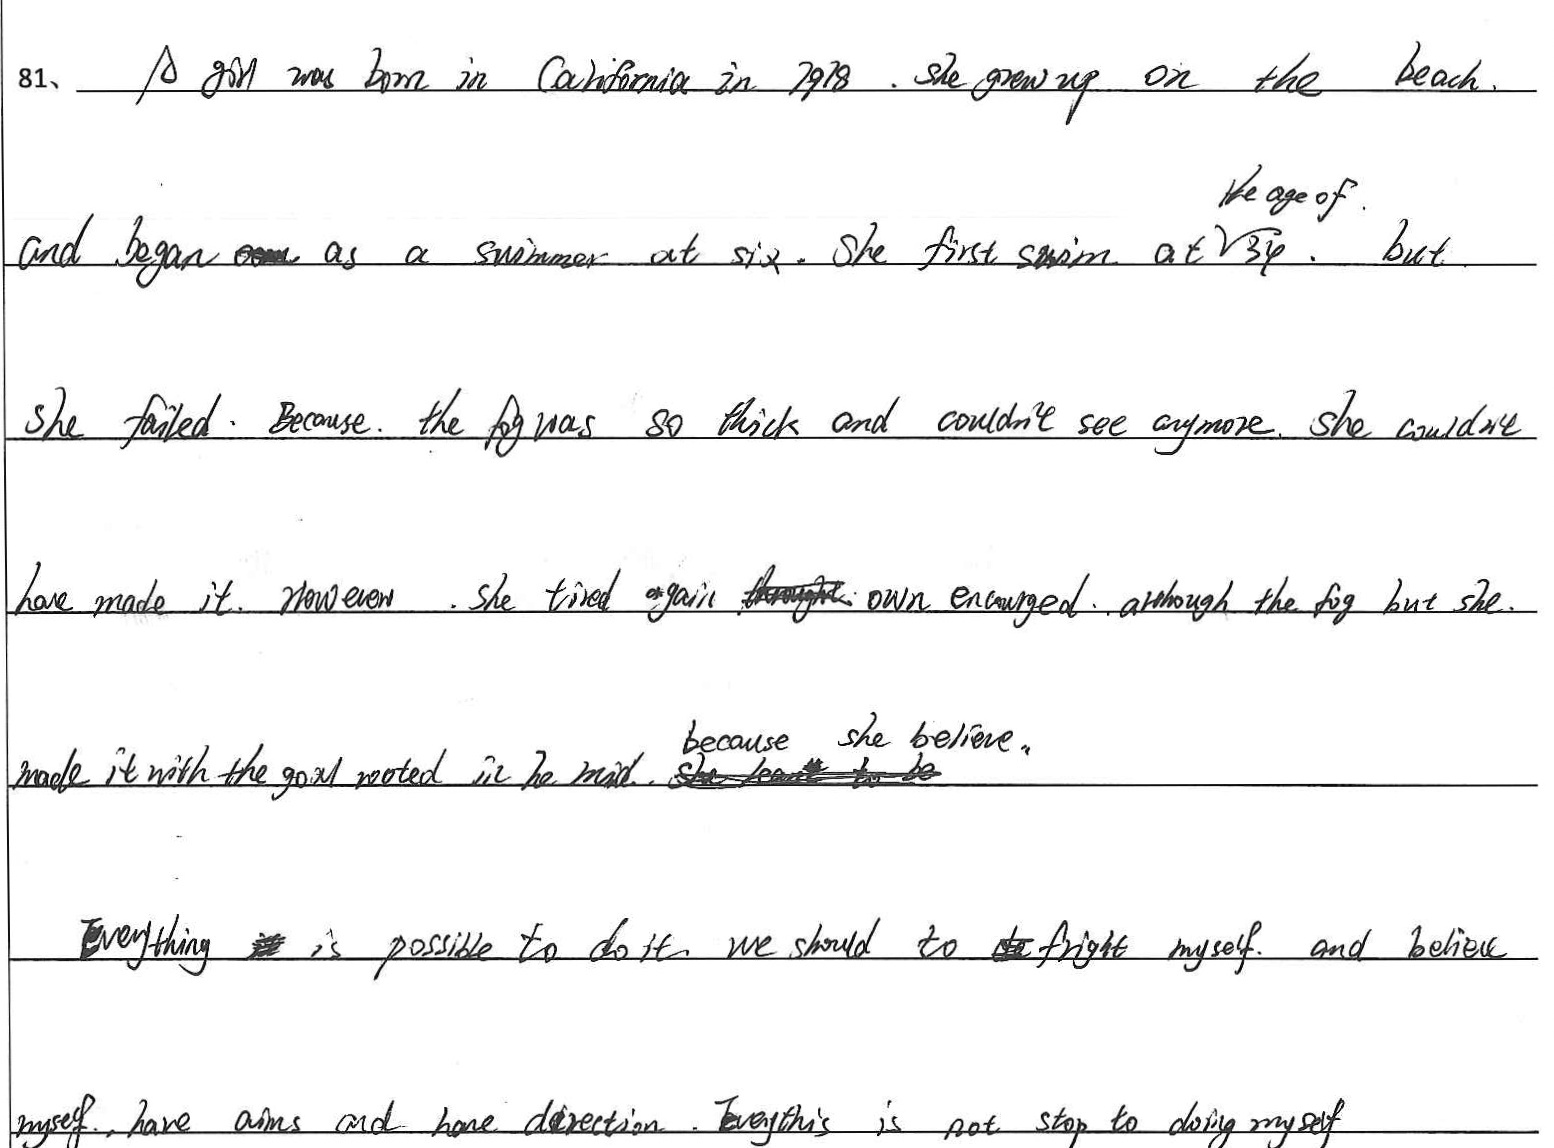 81、 A girl was born in California in 1918 . she grew up on the beach.
the age of.
and began as a swimmer at six. She first swim at √34 . but
she failed. Because. the fog was so thick and couldn't see anymore. she couldn't
have made it. However . she tired again own encourged. although the fog but she.
because she believe.
made it with the goal rooted in he mid.
Everything is possible to do it. we should to fright myself. and believe
myself. have aims and have direction. Everythis is not stop to doing myself